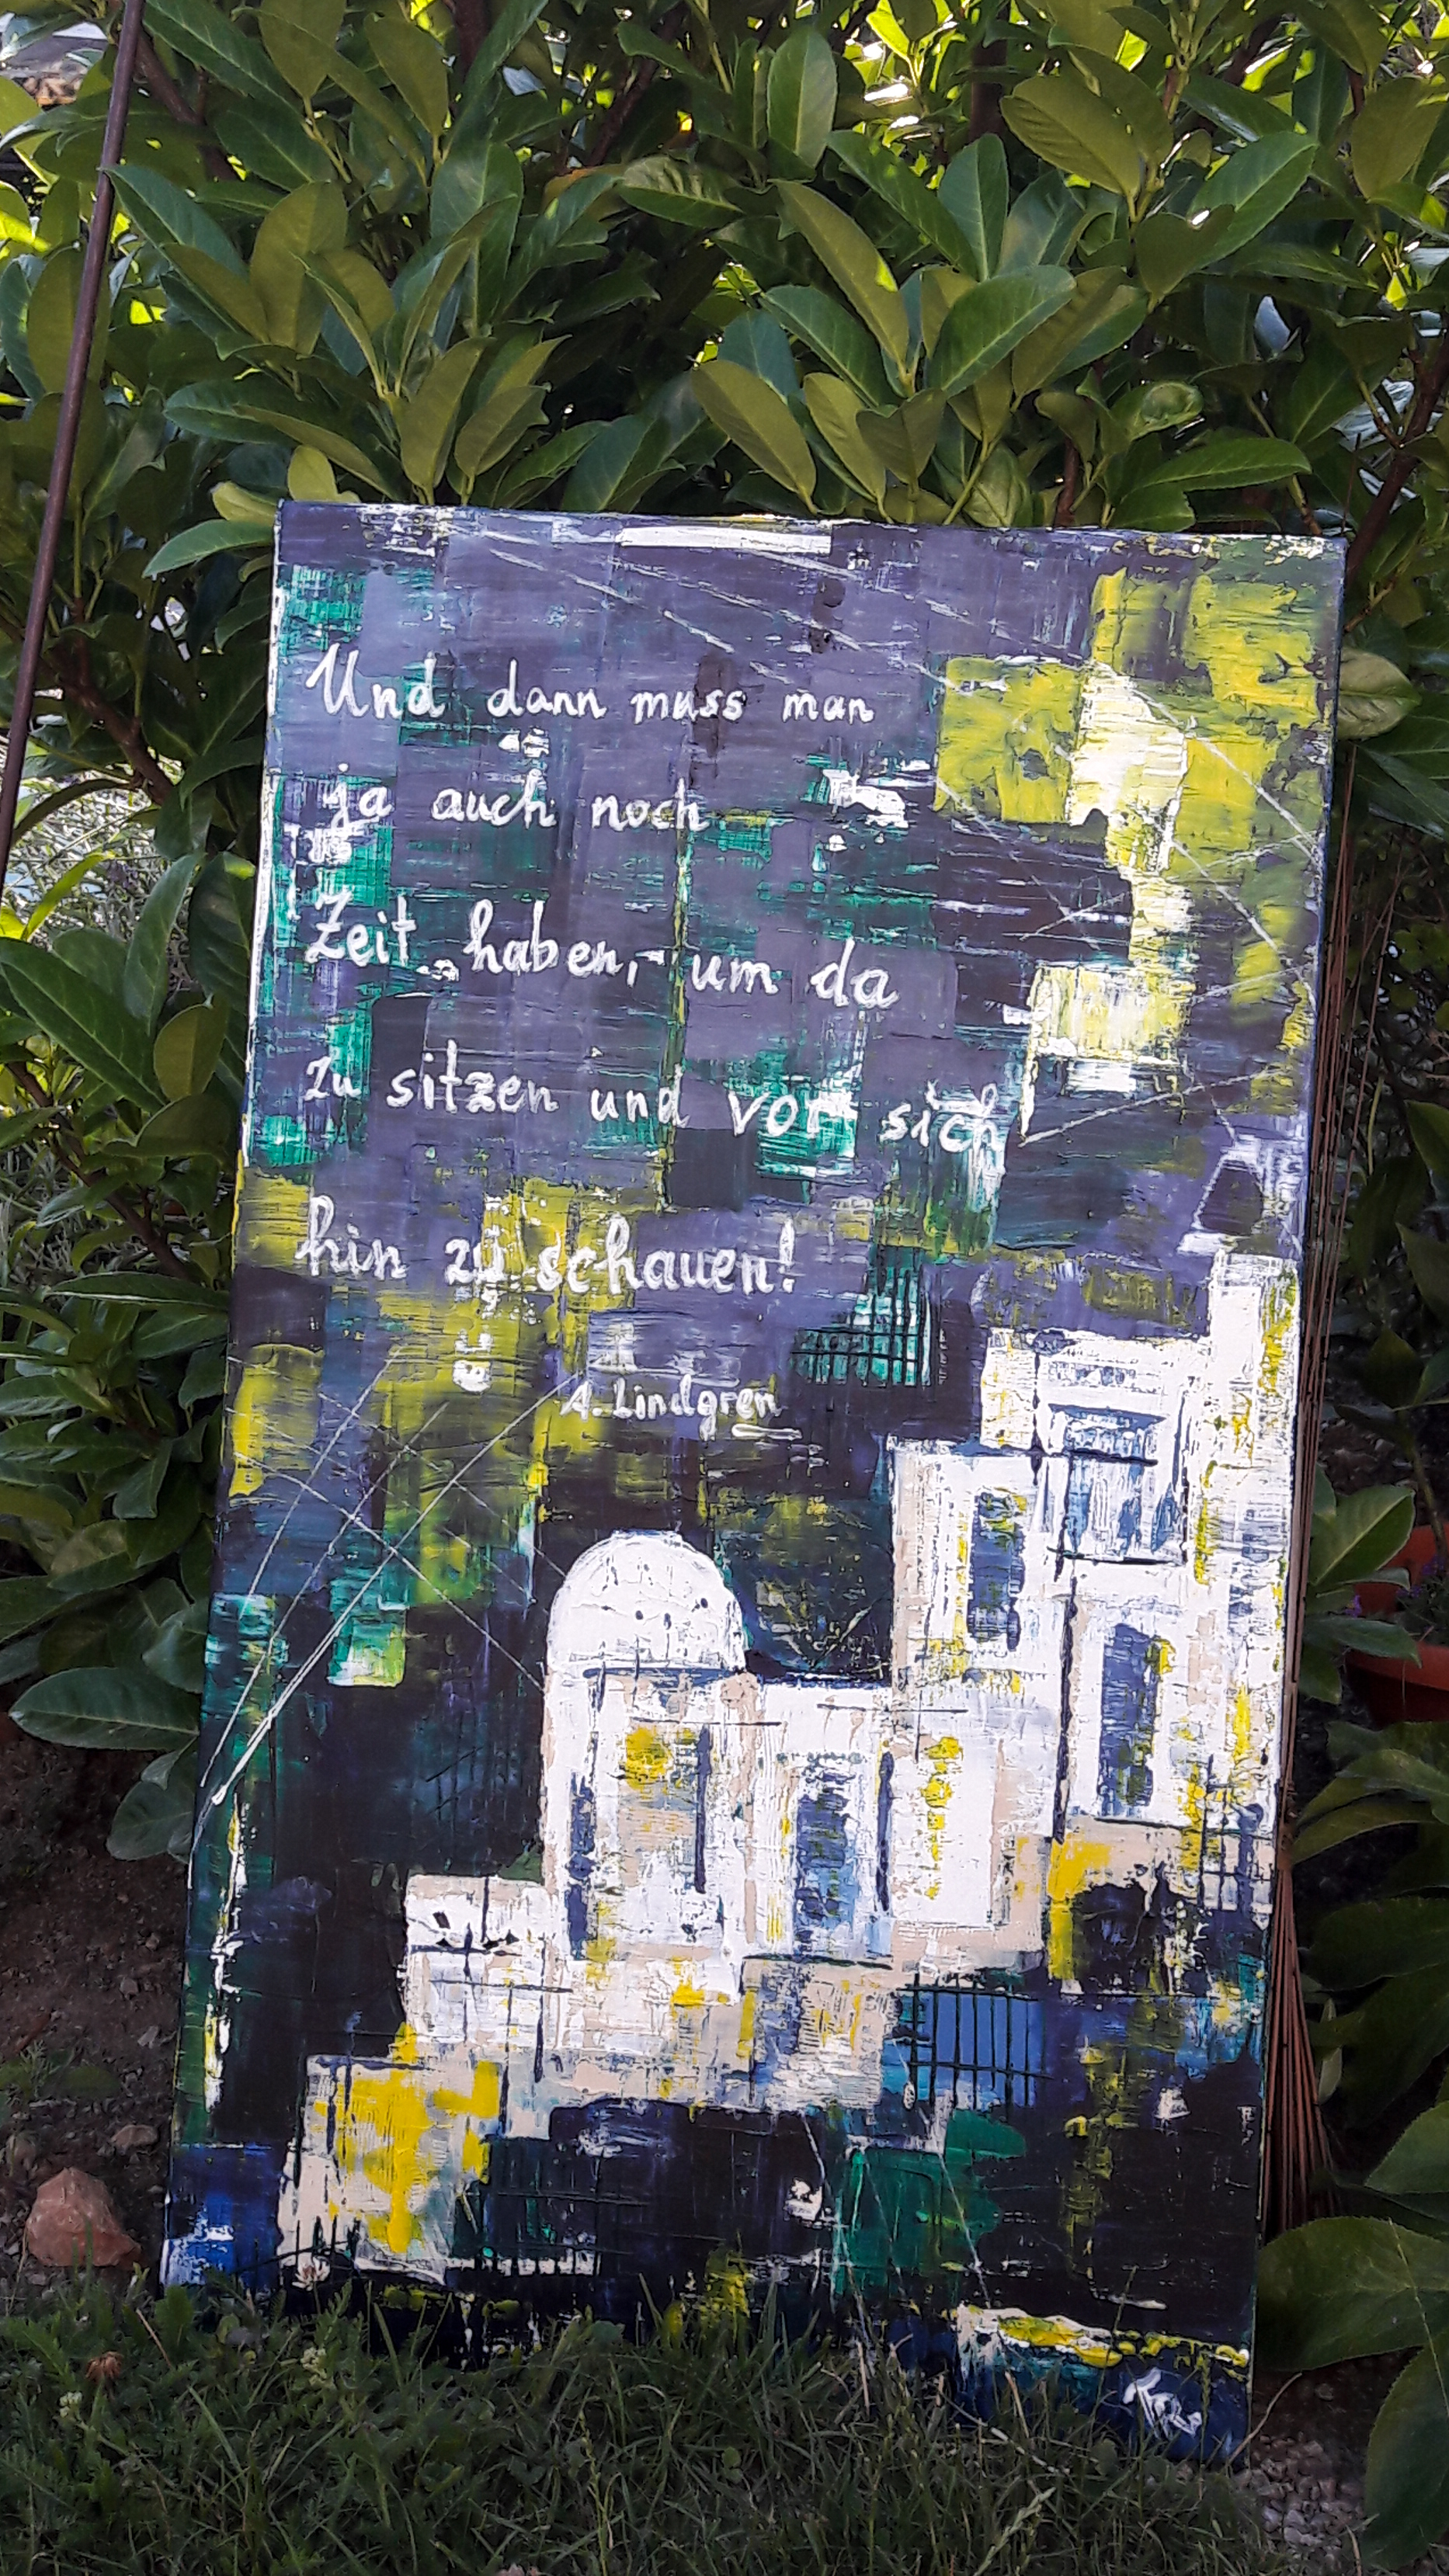 Und dann muss man
ja auch noch
Zeit haben, um da
zu sitzen und vor sich
hin zu schauen!
A. Lindgren